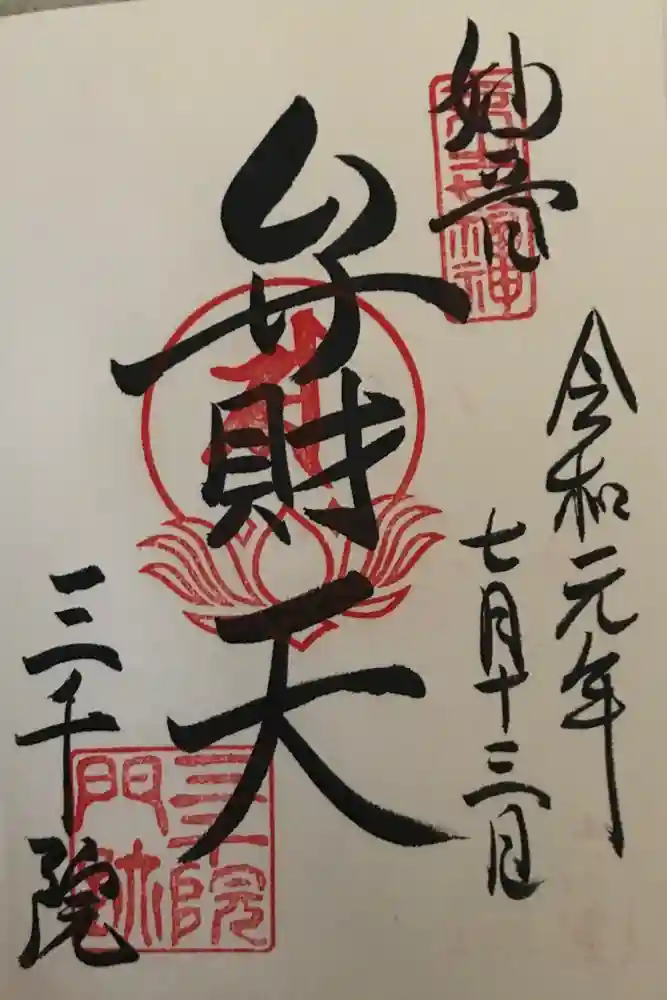 妙音
令和元年
七月十三日
弁財天
三千院
三千院
門跡